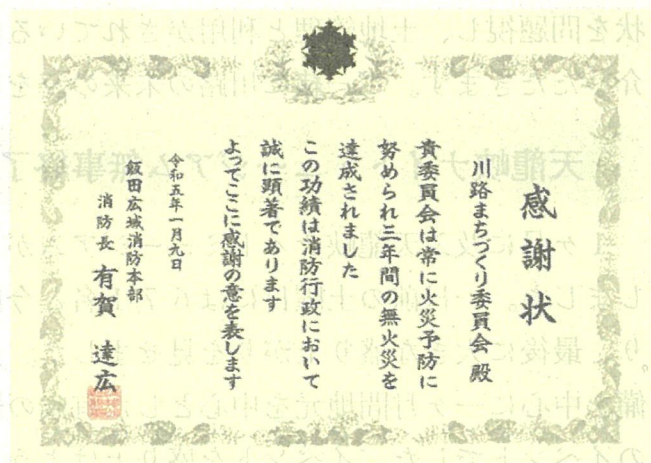 感謝状
川路まちづくり委員会 殿
貴委員会は常に火災予防に
努められ三年間の無火災を
達成されました
この功績は消防行政において
誠に顕著であります
よってここに感謝の意を表します
令和五年一月九日
飯田広域消防本部
消防長 有賀 達広